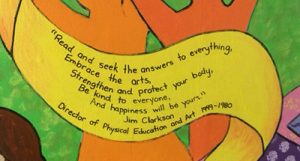 "Read and seek the answers to everything,
Embrace the arts,
Strengthen and protect your body,
Be kind to everyone,
And happiness will be yours."
Jim Clarkson
Director of Physical Education and Art 1949-1980